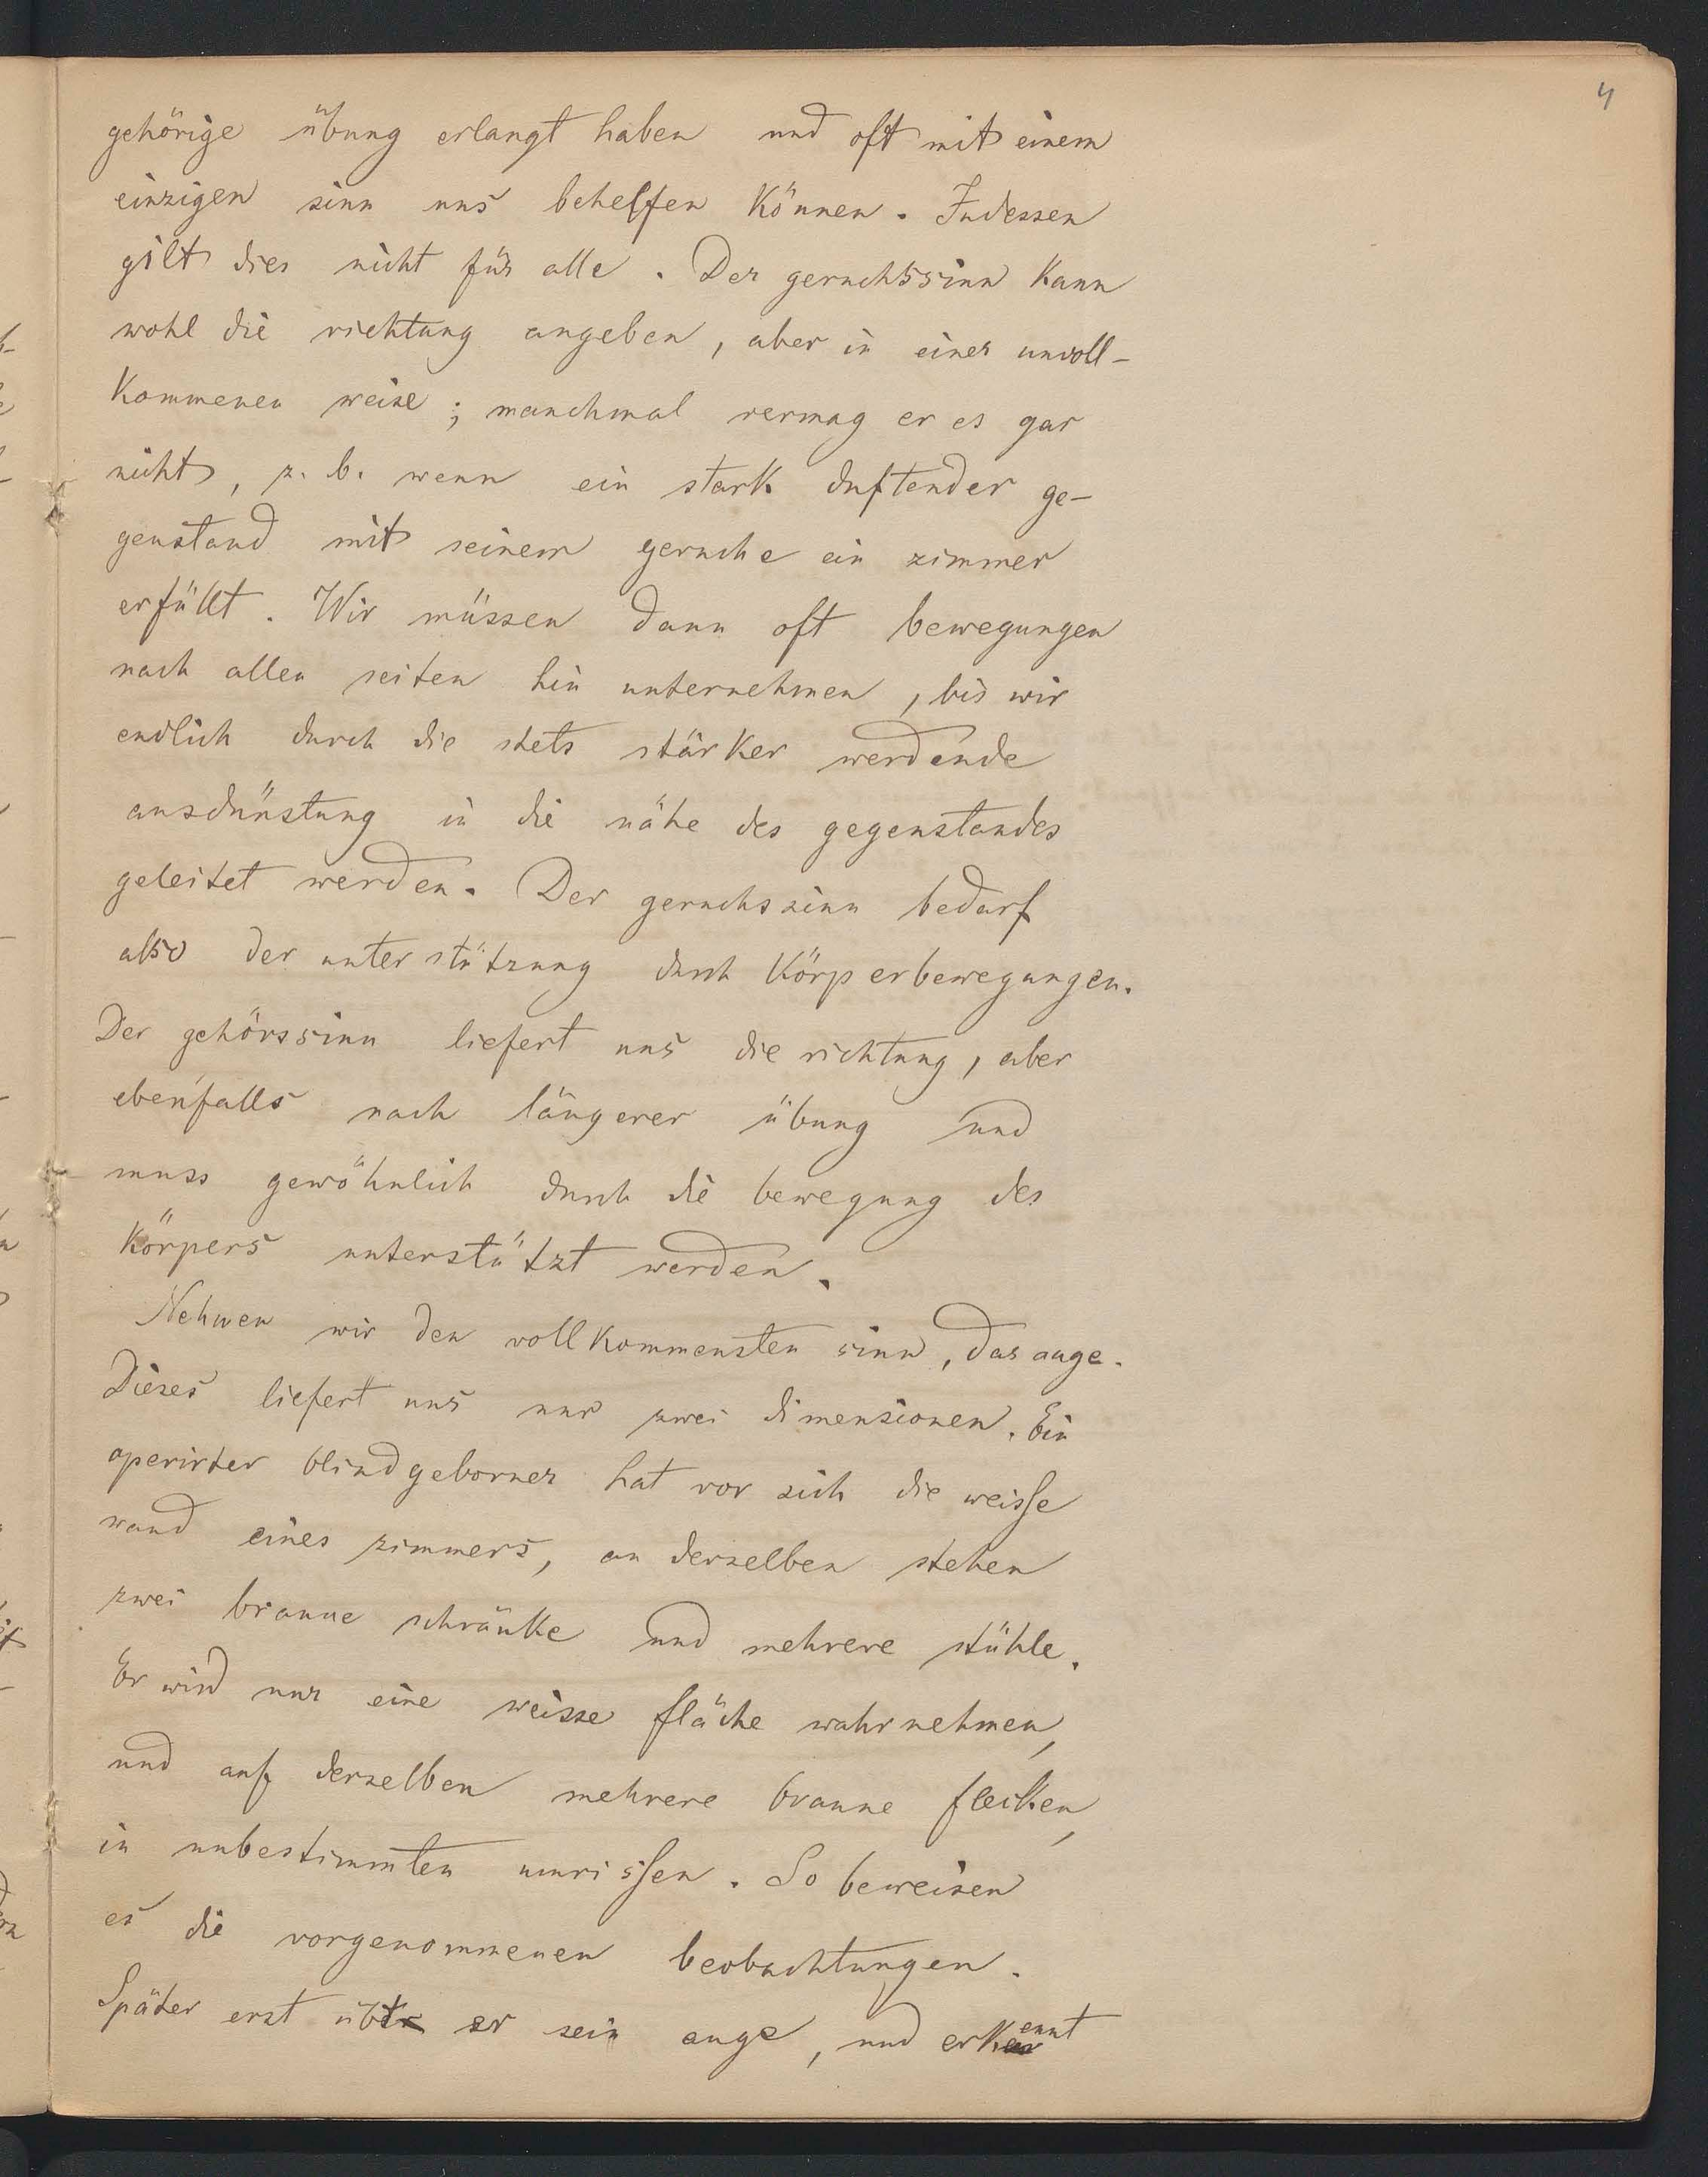 4
gehörige übung erlangt haben und oft mit einem
einzigen sinn uns behelfen können. Indessen
gilt dies nicht für alle. Der geruchssinn kann
wohl die richtung angeben, aber in einer unvoll-
kommenen weise; manchmal vermag er es gar
nicht, z. b. wenn ein stark duftender ge-
genstand mit seinem geruche ein zimmer
erfüllt. Wir müssen dann oft bewegungen
nach allen seiten hin unternehmen, bis wir
endlich durch die stets stärker werdende
ausdünstung in die nähe des gegenstandes
geleitet werden. Der geruchssinn bedarf
also der unterstützung durch körperbewegungen.
Der gehörssinn liefert uns die richtung, aber
ebenfalls nach längerer übung und
muss gewöhnlich durch die bewegung des
körpers unterstützt werden.
Nehmen wir den vollkommensten sinn, das auge.
Dieses liefert uns nur zwei dimensionen. Ein
operirter blindgeborner hat vor sich die weisse
wand eines zimmers, an derselben stehen
zwei braune schränke und mehrere stühle.
Er wird nur eine weisse fläche wahrnehmen,
und auf derselben mehrere braune flecken,
in unbestimmten umrissen. So beweisen
es die vorgenommenen beobachtungen.
Später erst übt er sein auge, und erkennt